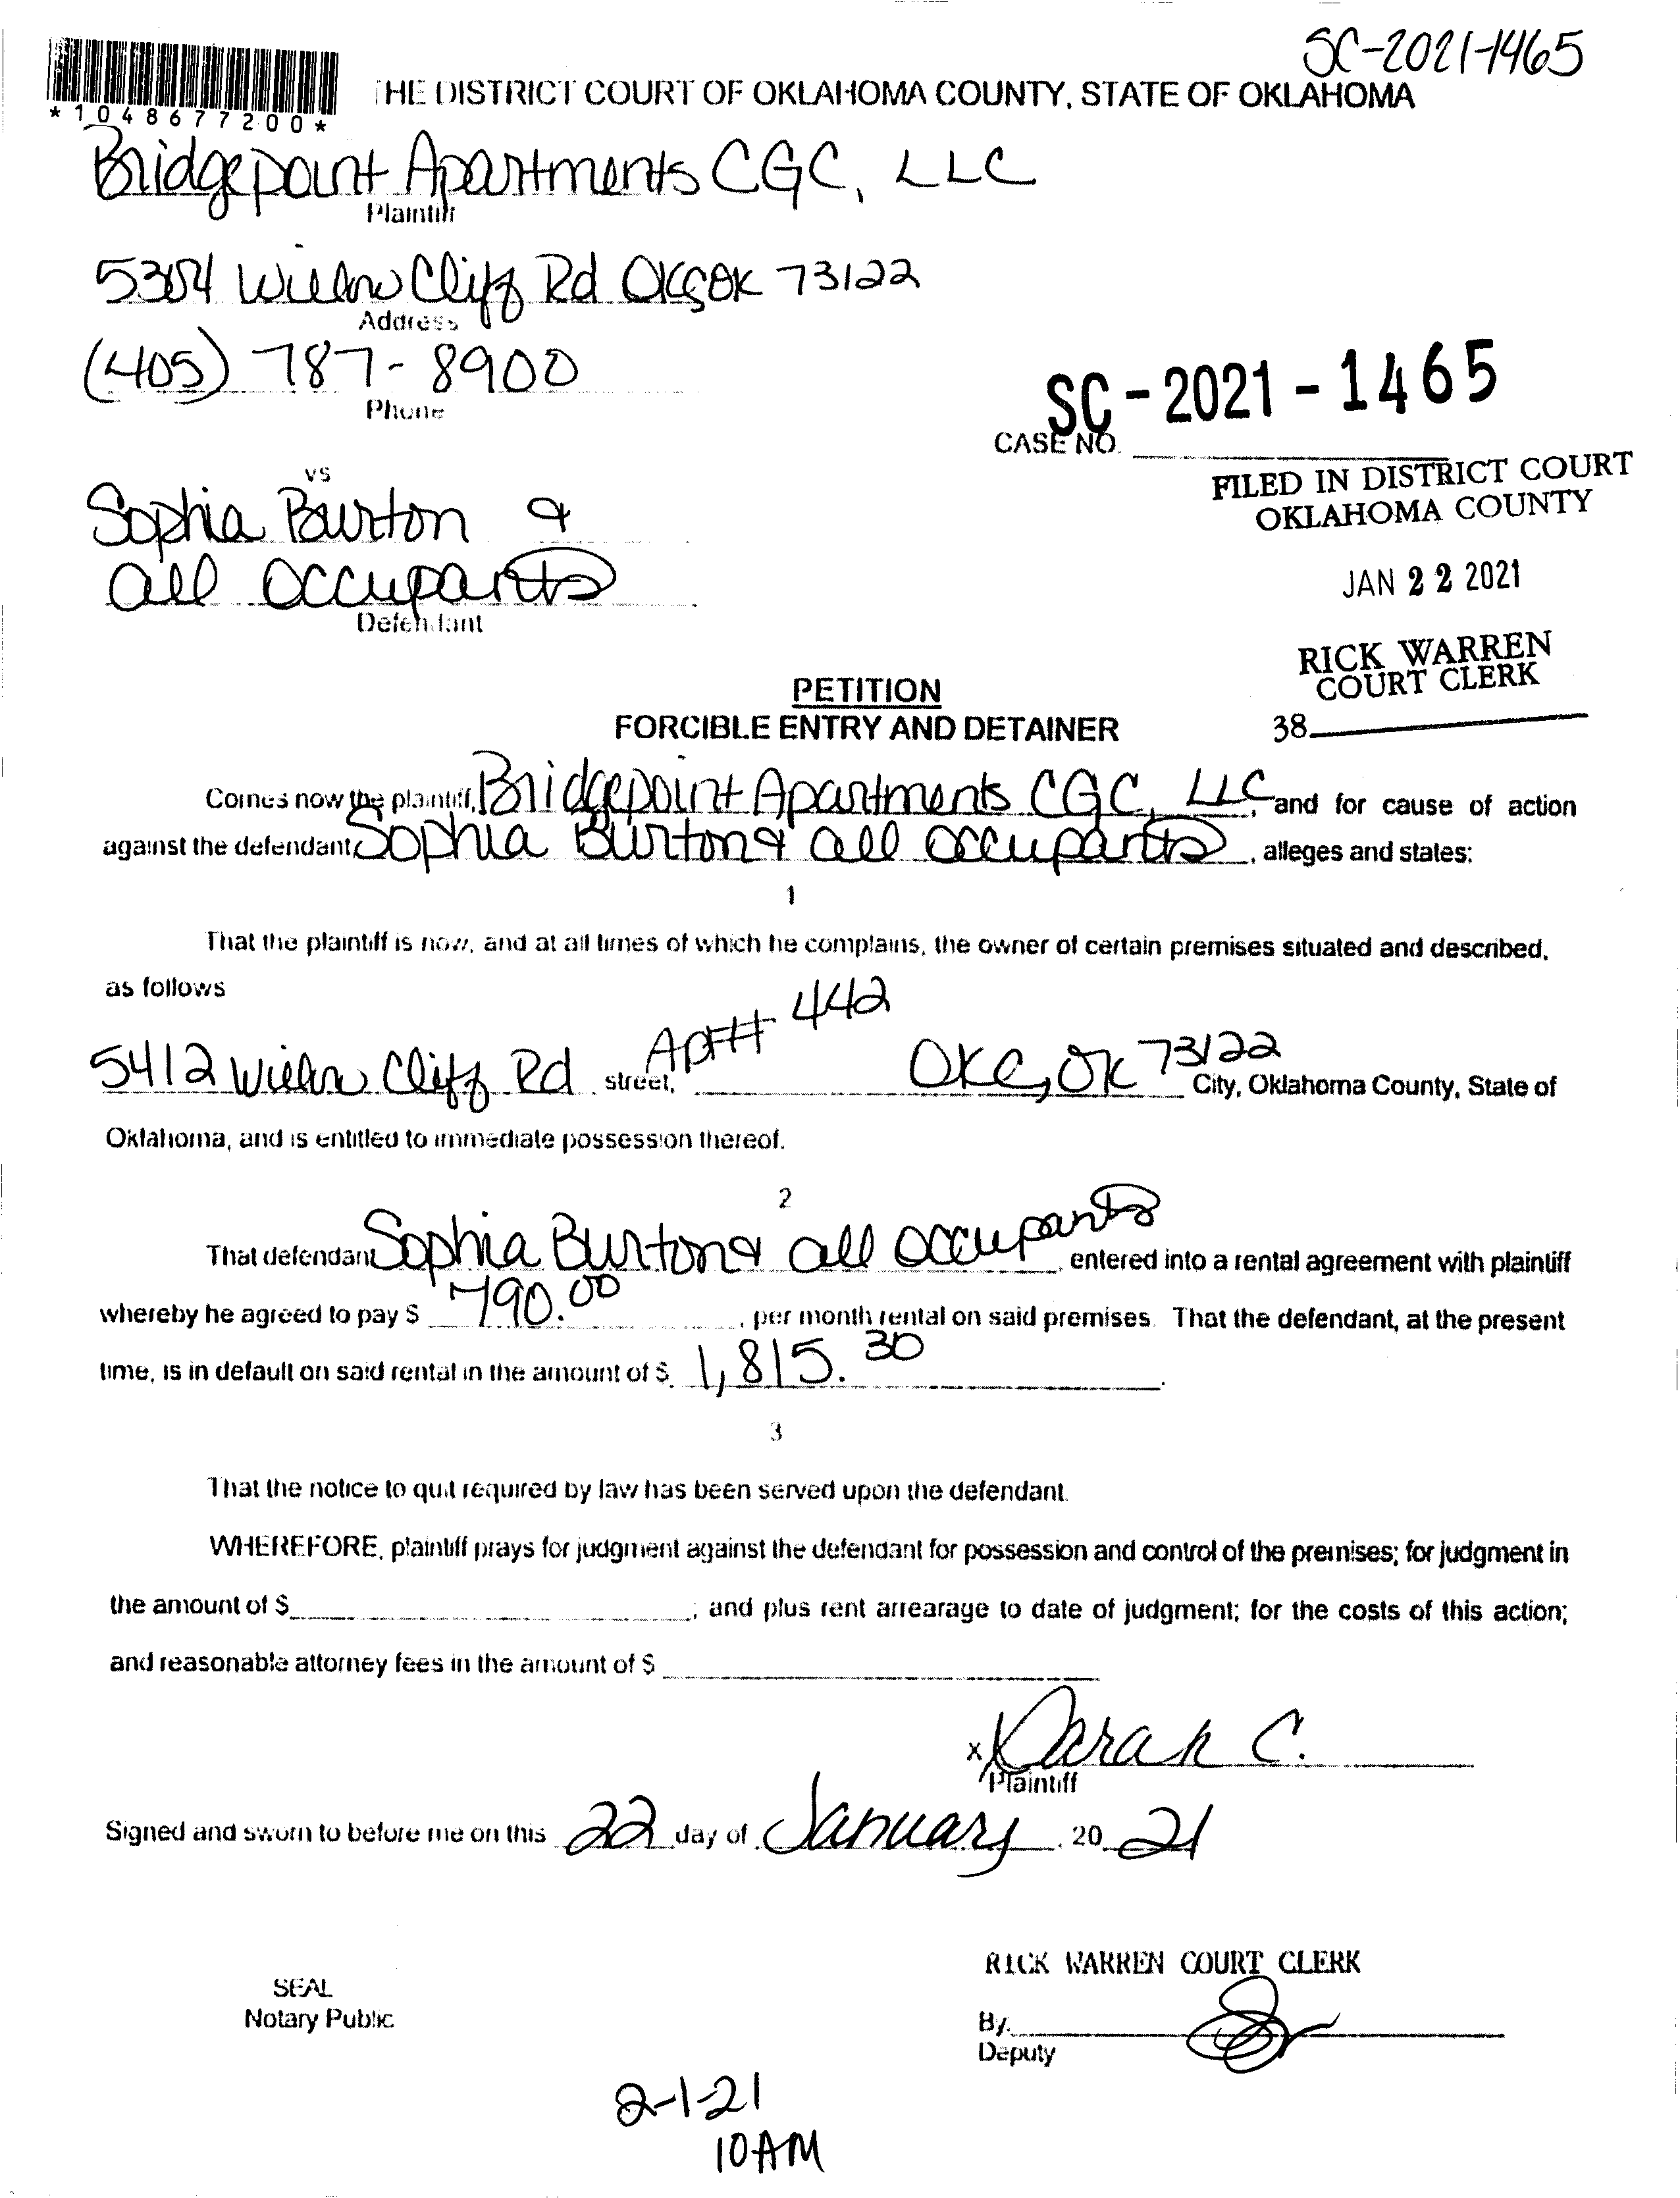 SC-2021-1465
*1048677200*
THE DISTRICT COURT OF OKLAHOMA COUNTY, STATE OF OKLAHOMA
Bridgepoint Apartments CGC, LLC
Plaintiff
5304 Willow Cliff Rd OKC OK 73122
Address
(405) 787-8900
Phone
SC-2021-1465
CASE NO.
FILED IN DISTRICT COURT
OKLAHOMA COUNTY
vs
Sophia Burton &
all occupants
Defendant
JAN 22 2021
RICK WARREN
COURT CLERK
38
PETITION
FORCIBLE ENTRY AND DETAINER
Comes now the plaintiff, Bridgepoint Apartments CGC, LLC, and for cause of action
against the defendant, Sophia Burton & all occupants, alleges and states:
1
That the plaintiff is now, and at all times of which he complains, the owner of certain premises situated and described,
as follows
5412 Willow Cliff Rd street, Apt# 442 OKC, OK 73122 City, Oklahoma County, State of
Oklahoma, and is entitled to immediate possession thereof.
2
That defendant Sophia Burton & all occupants, entered into a rental agreement with plaintiff
whereby he agreed to pay $ 790.00, per month rental on said premises. That the defendant, at the present
time, is in default on said rental in the amount of $ 1,815.30.
3
That the notice to quit required by law has been served upon the defendant.
WHEREFORE, plaintiff prays for judgment against the defendant for possession and control of the premises; for judgment in
the amount of $; and plus rent arrearage to date of judgment; for the costs of this action;
and reasonable attorney fees in the amount of $
x C.
Plaintiff
Signed and sworn to before me on this 22 day of January, 2021
RICK WARREN COURT CLERK
SEAL
Notary Public
By
Deputy
2-1-21
10AM